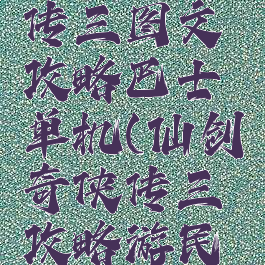 传三图文
攻略巴士
单机(仙创
奇侠传三
攻略游民